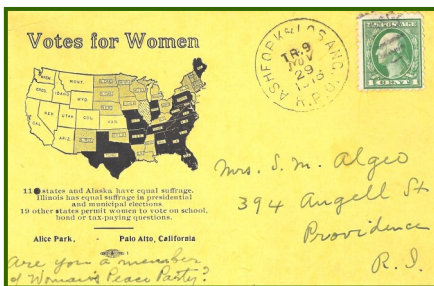 Votes for Women
WASH.
MONT.
ORE.
IDAHO
WYO.
NEV.
UTAH
COL.
CAL.
ARIZ.
TEXAS
11 states and Alaska have equal suffrage.
Illinois has equal suffrage in presidential
and municipal elections.
19 other states permit women to vote on school,
bond or tax-paying questions.
Alice Park, Palo Alto, California
are you a member
of Woman's Peace Party?
ASHFORK & LOS ANG.
TR. 9
NOV
29
R.P.O.
1 CENT 1
Mrs. S. M. Algeo
394 Angell St
Providence
R. I.